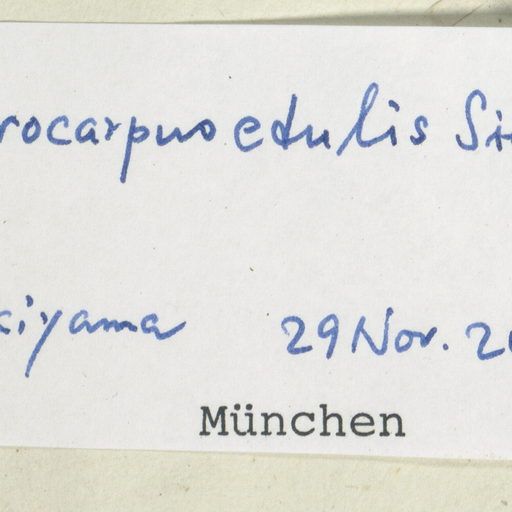 rocarpus edulis Si
kiyama 29 Nov. 20
München